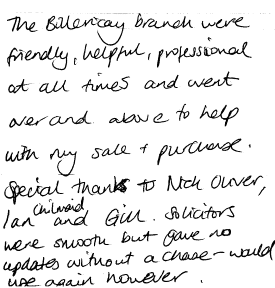 The Billericay branch were
friendly, helpful, professional
at all times and went
over and above to help
with my sale + purchase.
Special thanks to Nick Oliver,
Ian and Gill. Solicitors
were smooth but gave no
updates without a chase - would
use again however.